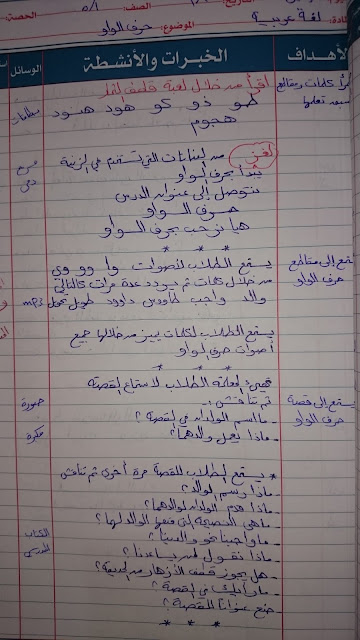 التاريخ: الصف: ٥/١ الحصة:
المادة: لغة عربية الموضوع: حرف الواو
الأهداف الخبرات والأنشطة الوسائل
اقرأ من خلال لعبة
يقرأ كلمات ومقاطع
سبق تعلمها
طو ذو كو هود هنود
هجوم
بطاقات
لغز من النباتات التي تستخدم في الزينة
يبدأ بحرف الواو
نتوصل إلى عنوان الدرس
حرف الواو
هيا نرحب بحرف الواو
* * *
يستمع إلى مقاطع
حرف الواو
يستمع الطلاب لأصوات وا وو وي
من خلال كلمات ثم يردد عدة مرات كالتالي
والد واجب طاووس داوود طويل تحمل
mp3
يستمع الطلاب لكلمات يميز من خلالها جميع
أصوات حرف الواو
* * *
يستمع إلى قصة
حرف الواو
تهيئ المعلمة الطلاب لاستماع القصة
ثم تناقش:
- ما اسم الولدان في القصة؟
- ماذا يعمل والدهما؟
صورة
فكرة
* يستمع الطلاب للقصة مرة أخرى ثم تناقش
- ماذا رسم الوالد؟
- ماذا قدم الولدان لوالدهما؟
- ماهي النصيحة التي قدمها الوالد لها؟
- ما واجبنا نحو والدينا؟
- ماذا نقول لمن يساعدنا؟
- هل يجوز قطف الأزهار من الحديقة؟
- ما رأيك في القصة؟
- ضع عنوانًا للقصة؟
الكتاب
المدرسي
* * *